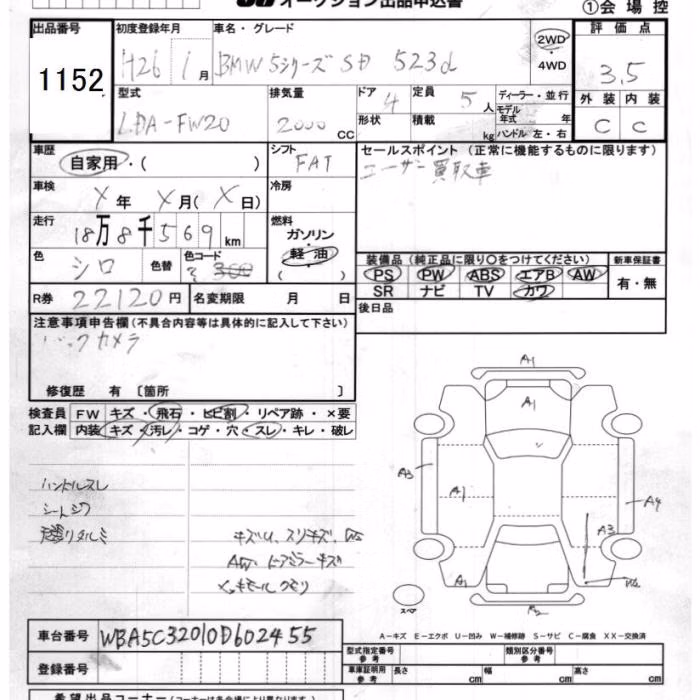 オークション出品申込書
①会場控
出品番号 初度登録年月 車名・グレード 評価点
1152 H26 1月 BMW5シリーズ SD 523d 2WD・4WD 3.5
型式 排気量 ドア 定員 ディーラー・並行 外装 内装
LDA-FW20 2000CC 4 5人 モデル年式 年 C C
形状 積載 kg ハンドル 左・右
車歴 シフト セールスポイント (正常に機能するものに限ります)
自家用・( ) FAT ユーザー買取車
車検 冷房
X年 X月(X日)
走行 燃料
18万8千569km ガソリン・軽油 ( )
色 色替 色コード 装備品(純正品に限り○をつけてください) 新車保証書
シロ ? 300 PS PW ABS エアB AW 有・無
SR ナビ TV カワ
R券 22120円 名変期限 月 日 後日品
注意事項申告欄(不具合内容等は具体的に記入して下さい)
バックカメラ
修復歴 有 〔箇所 〕
検査員 FW キズ・飛石・ヒビ割・リペア跡・×要
記入欄 内装 キズ・汚レ・コゲ・穴・スレ・キレ・破レ
A1
A1
A3 A1 A3 A4
A1
ハンドルスレ
シートシワ
天張りタルミ キズU、スリキズ、
AW、ドアミラーキズ
メッキモールクモリ
スペア
A-キズ E-エクボ U-凹み W-補修跡 S-サビ C-腐食 XX-交換済
車台番号 WBA5C32010D602455 型式指定番号 参考 類別区分番号 参考
登録番号 車庫証明用 参考 長さ cm 幅 cm 高さ cm
希望出品コーナー(コーナーは各会場により異なります)